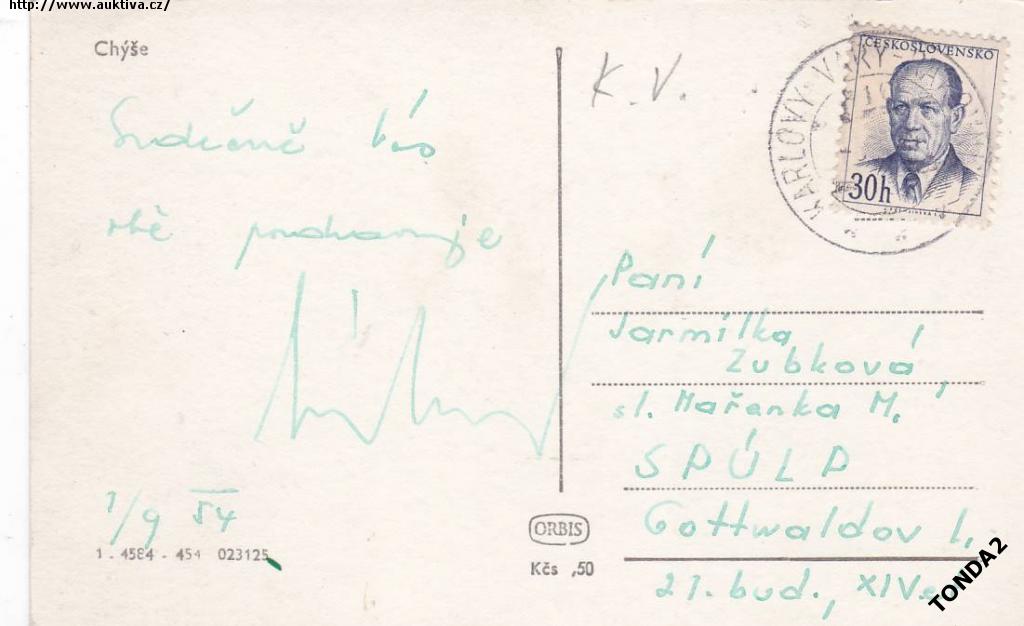 http://www.auktiva.cz/
Chýše
K.V.
KARLOVY VARY
ČESKOSLOVENSKO
30h
Srdečně Vás
obě pozdravuje
1/9 54
1 - 4584 - 454 023125
ORBIS
Kčs ,50
Paní
Jarmilka
Zubková
sl. Mařenka M.
SPÚLP
Gottwaldov I.
21. bud., XIV
TONDA2